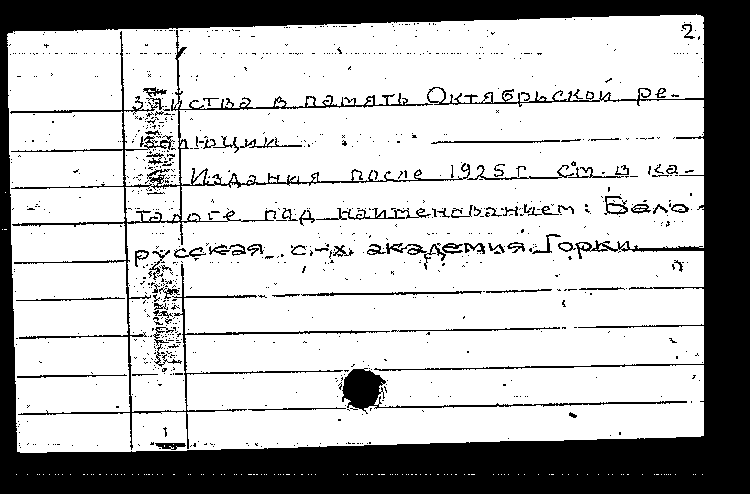 2.
зяйства в память Октябрьской ре-
волюции
Издания после 1925 г. см. в ка-
талоге под наименованием: Бело-
русская с.-х. академия. Горки.